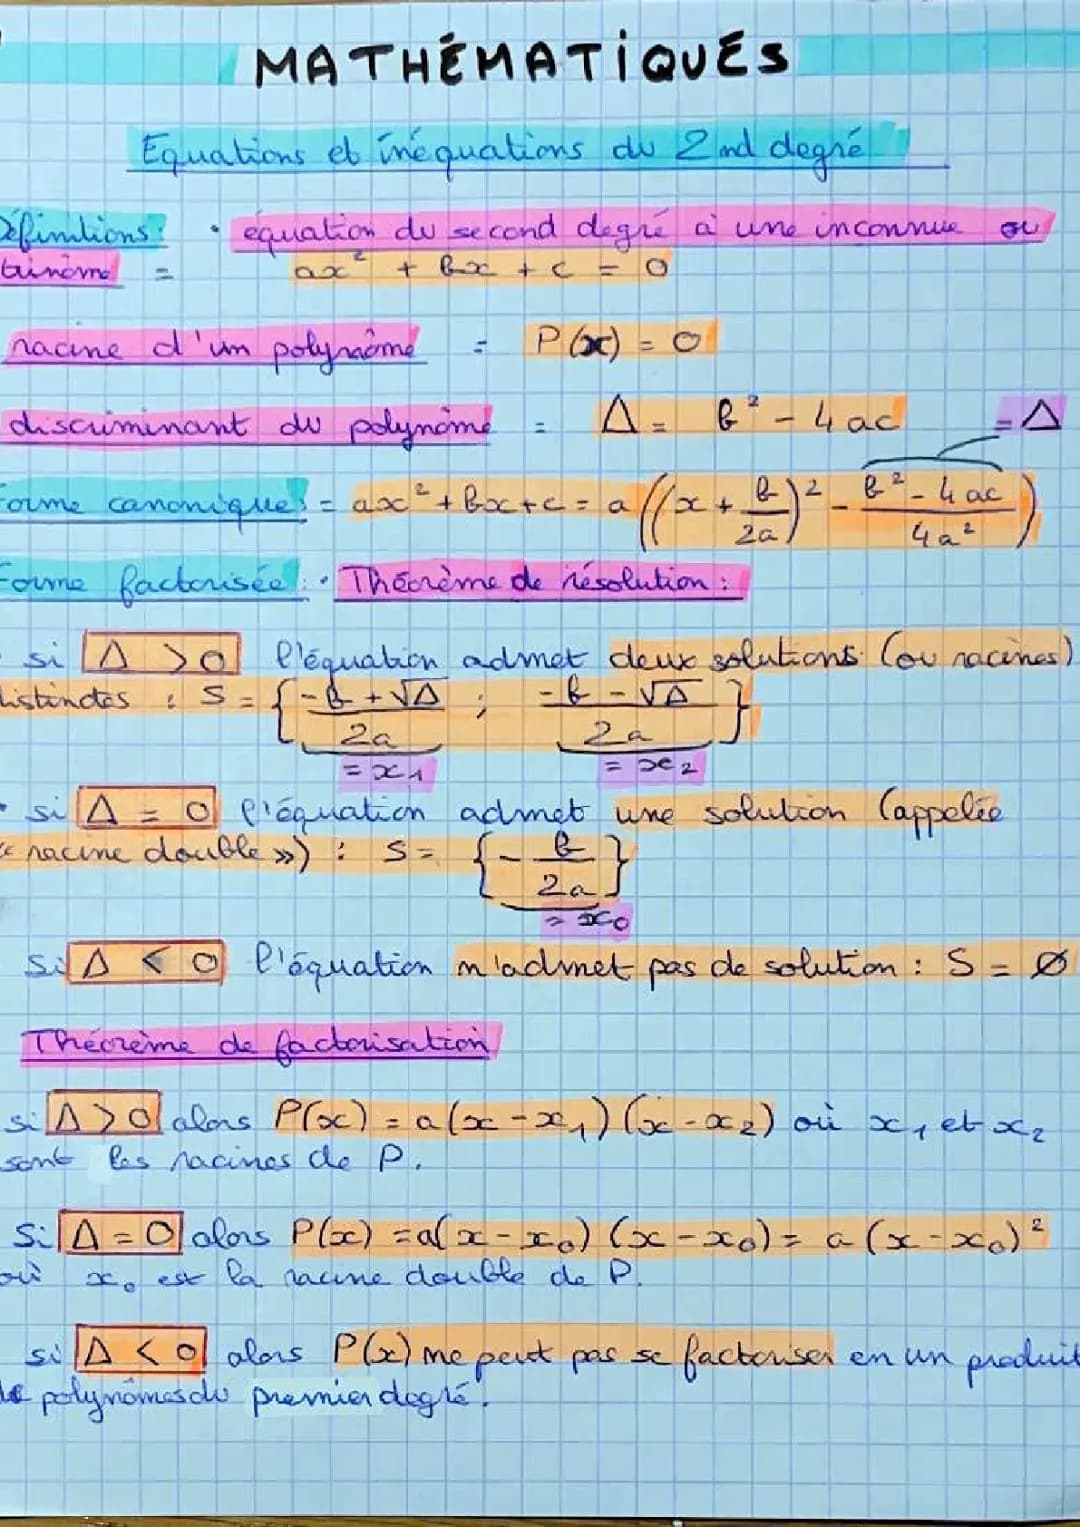 MATHÉMATIQUES
Equations et inéquations du 2nd degré
Définitions: • équation du second degré à une inconnue ou
trinôme = ax² + bx + c = 0
racine d'un polynôme = P(x) = 0
discriminant du polynôme = Δ = b² - 4ac = Δ
Forme canonique: = ax² + bx + c = a((x + b/2a)² - b² - 4ac/4a²)
Forme factorisée: • Théorème de résolution:
si Δ > 0 l'équation admet deux solutions (ou racines)
distinctes : S = {-b + √Δ/2a ; -b - √Δ/2a}
= x₁ = x₂
• si Δ = 0 l'équation admet une solution (appelée
« racine double ») : S = {-b/2a}
= x₀
Si Δ < 0 l'équation n'admet pas de solution : S = Ø
Théorème de factorisation
si Δ > 0 alors P(x) = a(x - x₁)(x - x₂) où x₁ et x₂
sont les racines de P.
Si Δ = 0 alors P(x) = a(x - x₀)(x - x₀) = a(x - x₀)²
où x₀ est la racine double de P.
si Δ < 0 alors P(x) ne peut pas se factoriser en un produit
de polynômes du premier degré.